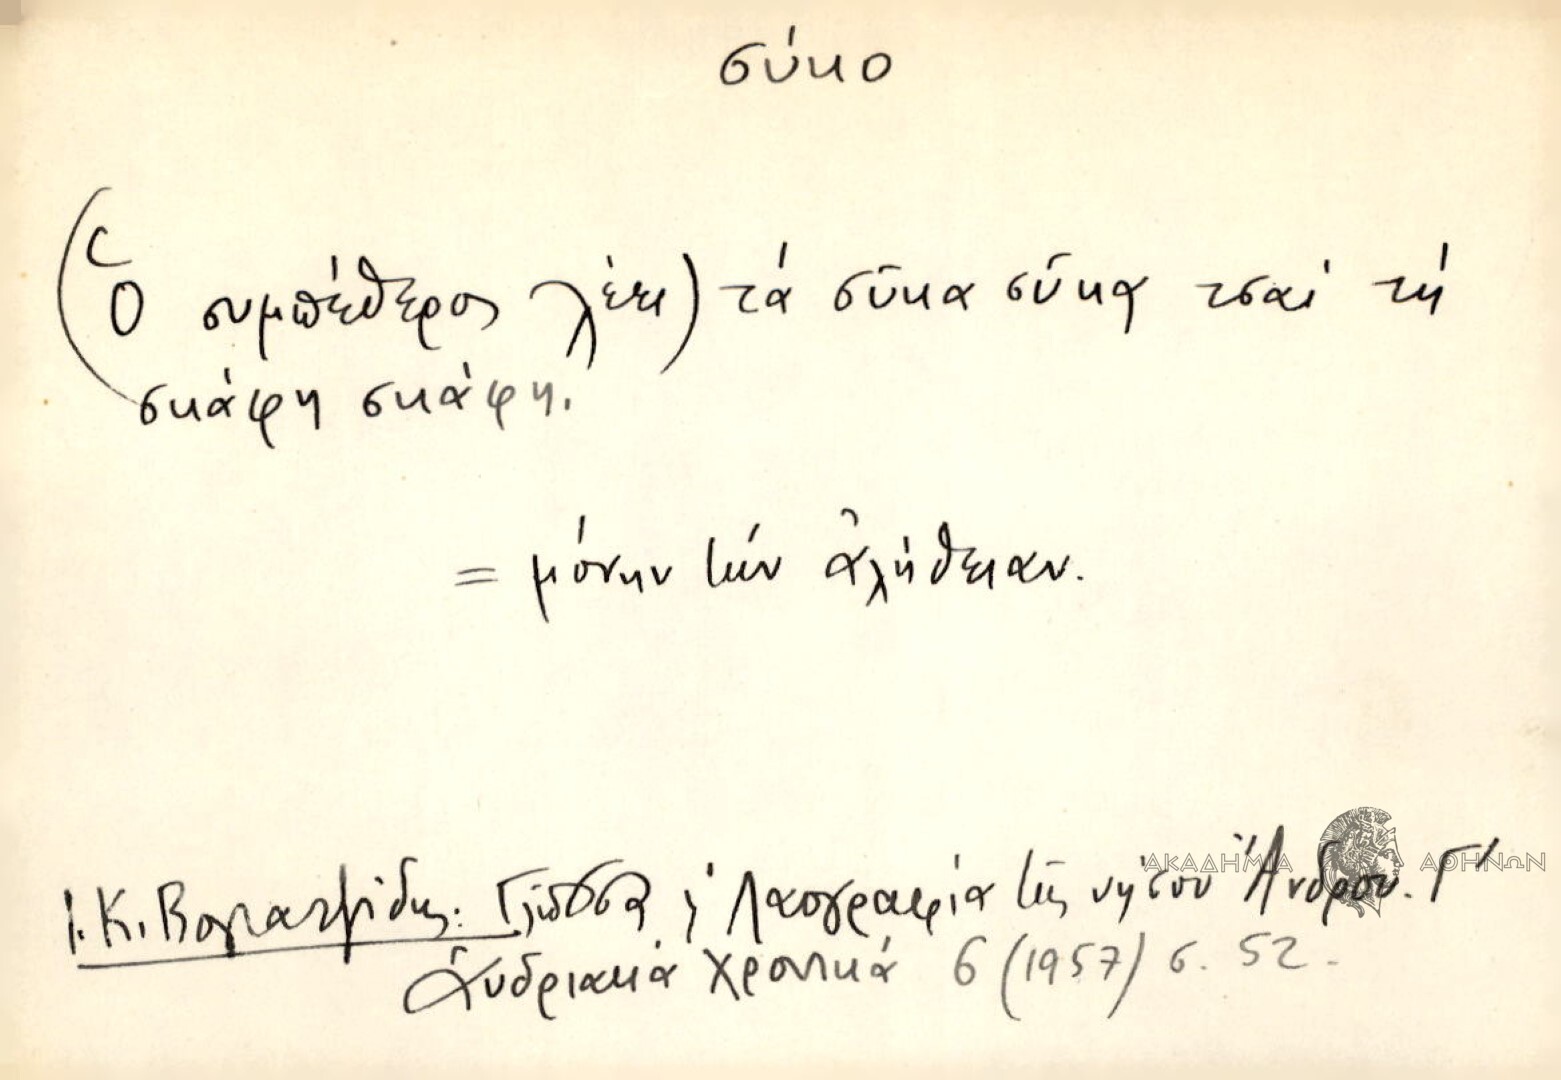 σύκο
(Ὁ συμπέθερος λέει) τά σῦκα σῦκα τσαί τή
σκάφη σκάφη.
= μόνην τήν ἀλήθειαν.
Ι. Κ. Βογιατζίδης: Γλῶσσα ϗ Λαογραφία τῆς νήσου Ἄνδρου. Γ'
Ἀνδριακά Χρονικά 6 (1957) σ. 52.
ΑΚΑΔΗΜΙΑ ΑΘΗΝΩΝ